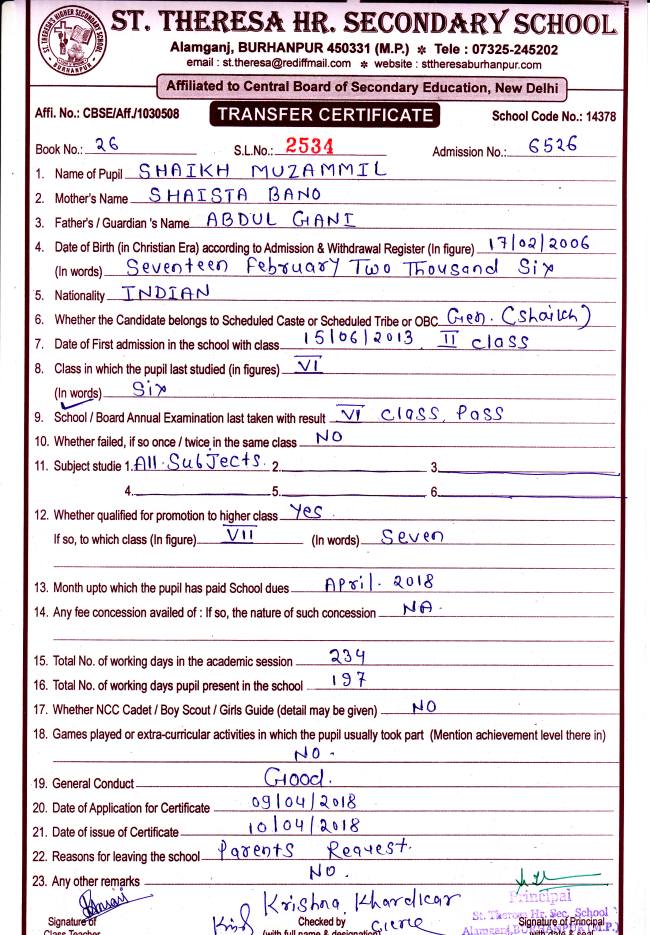 ST. THERESA'S HIGHER SECONDARY SCHOOL
BURHANPUR
ST. THERESA HR. SECONDARY SCHOOL
Alamganj, BURHANPUR 450331 (M.P.) * Tele : 07325-245202
email : st.theresa@rediffmail.com * website : sttheresaburhanpur.com
Affiliated to Central Board of Secondary Education, New Delhi
Affi. No.: CBSE/Aff./1030508 TRANSFER CERTIFICATE School Code No.: 14378
Book No.: 26 S.L.No.: 2534 Admission No.: 6526
1. Name of Pupil SHAIKH MUZAMMIL
2. Mother's Name SHAISTA BANO
3. Father's / Guardian 's Name ABDUL GANI
4. Date of Birth (in Christian Era) according to Admission & Withdrawal Register (In figure) 17/02/2006
(In words) Seventeen February Two Thousand Six
5. Nationality INDIAN
6. Whether the Candidate belongs to Scheduled Caste or Scheduled Tribe or OBC. Gen. (Shaikh)
7. Date of First admission in the school with class 15/06/2013 II class
8. Class in which the pupil last studied (in figures) VI
(In words) Six
9. School / Board Annual Examination last taken with result VI class, Pass
10. Whether failed, if so once / twice in the same class NO
11. Subject studie 1. All Subjects. 2. 3.
4. 5. 6.
12. Whether qualified for promotion to higher class Yes
If so, to which class (In figure) VII (In words) Seven
13. Month upto which the pupil has paid School dues April. 2018
14. Any fee concession availed of : If so, the nature of such concession NA.
15. Total No. of working days in the academic session 234
16. Total No. of working days pupil present in the school 197
17. Whether NCC Cadet / Boy Scout / Girls Guide (detail may be given) NO
18. Games played or extra-curricular activities in which the pupil usually took part (Mention achievement level there in)
NO -
19. General Conduct Good.
20. Date of Application for Certificate 09/04/2018
21. Date of issue of Certificate 10/04/2018
22. Reasons for leaving the school Parents Request.
23. Any other remarks NO.
Krishna Khardikar
Principal
St. Theresa Hr. Sec. School
Signature of Checked by Signature of Principal
Alamganj, BURHANPUR (M.P.)
Class Teacher (with full name & designation) (with date & seal)